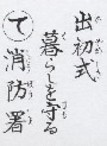 出初式
暮らしを守る
て 消防署